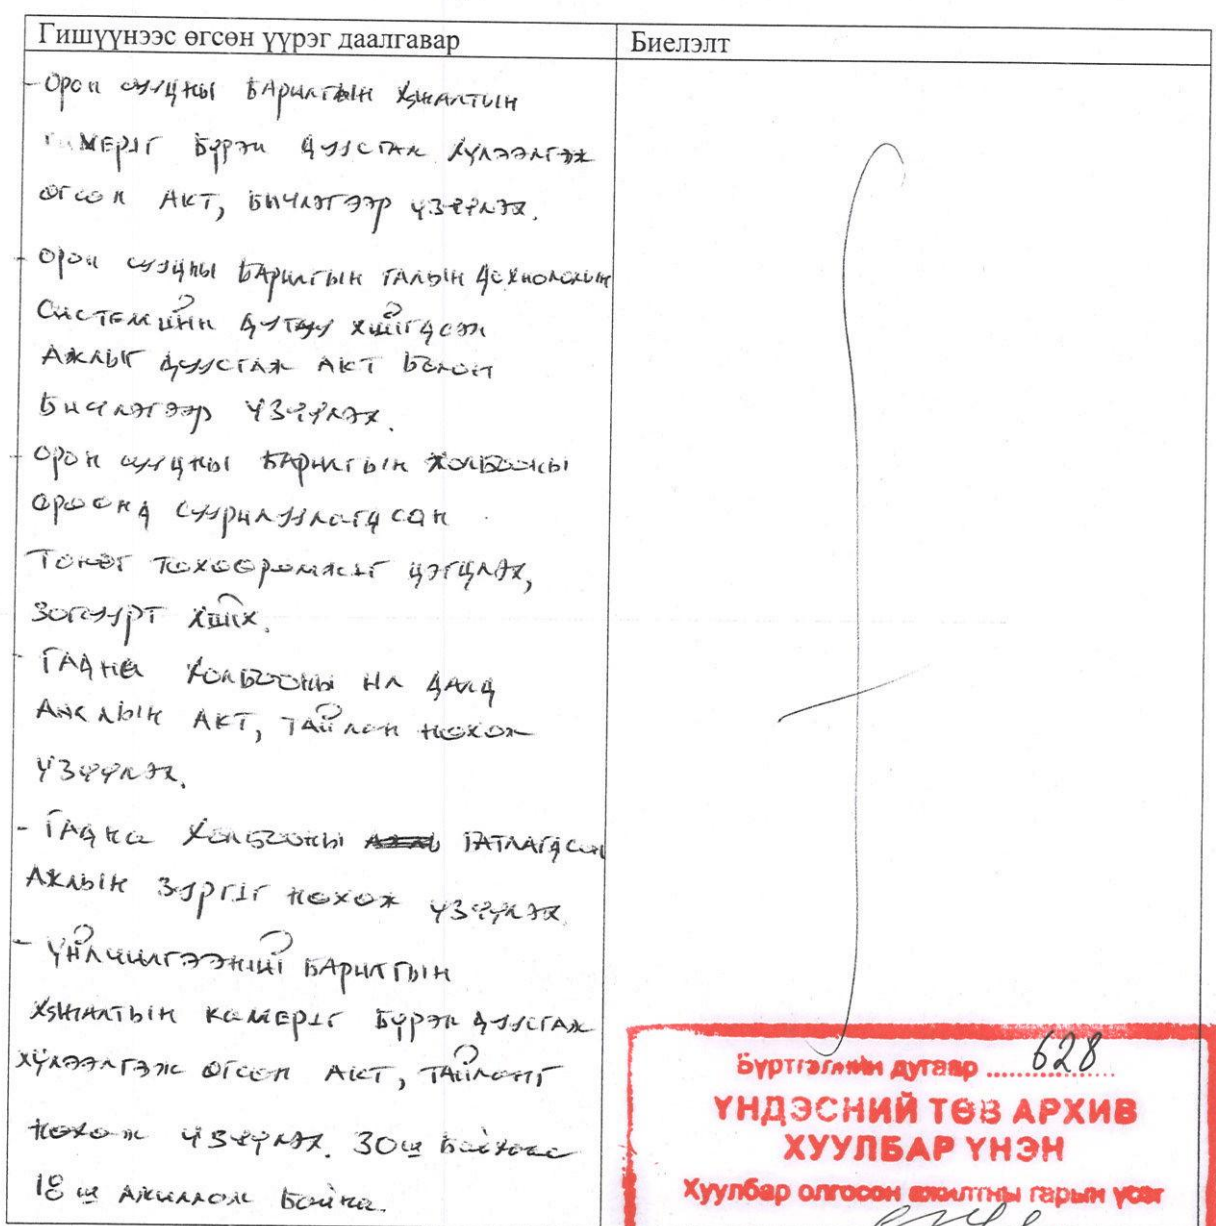 Гишүүнээс өгсөн үүрэг даалгавар
Биелэлт
- Орон сууцны барилгын хяналтын
камерыг бүрэн дуусгаж хүлээлгэж
өгсөн акт, бичлэгээр үзүүлэх.
- Орон сууцны барилгын галын дохиололын
системийн дутуу хийгдсэн
ажлыг дуусгаж акт болон
бичлэгээр үзүүлэх.
- Орон сууцны барилгын холбооны
өрөөнд суурилуулагдсан
тоног төхөөрөмжыг цэгцлэх,
зогсуурт хийх.
- Гадна холбооны ил далд
ажлын акт, тайлан нөхөж
үзүүлэх.
- Гадна холбооны гатлагдсан
ажлын зургыг нөхөж үзүүлэх.
- Үйлчилгээний барилгын
хяналтын камерыг бүрэн дуусгаж
хүлээлгэж өгсөн акт, тайланг
нөхөж үзүүлэх. 30ш байхаас
18ш ажиллаж байна.
Бүртгэлийн дугаар ........ 628
ҮНДЭСНИЙ ТӨВ АРХИВ
ХУУЛБАР ҮНЭН
Хуулбар олгосон ажилтны гарын үсэг